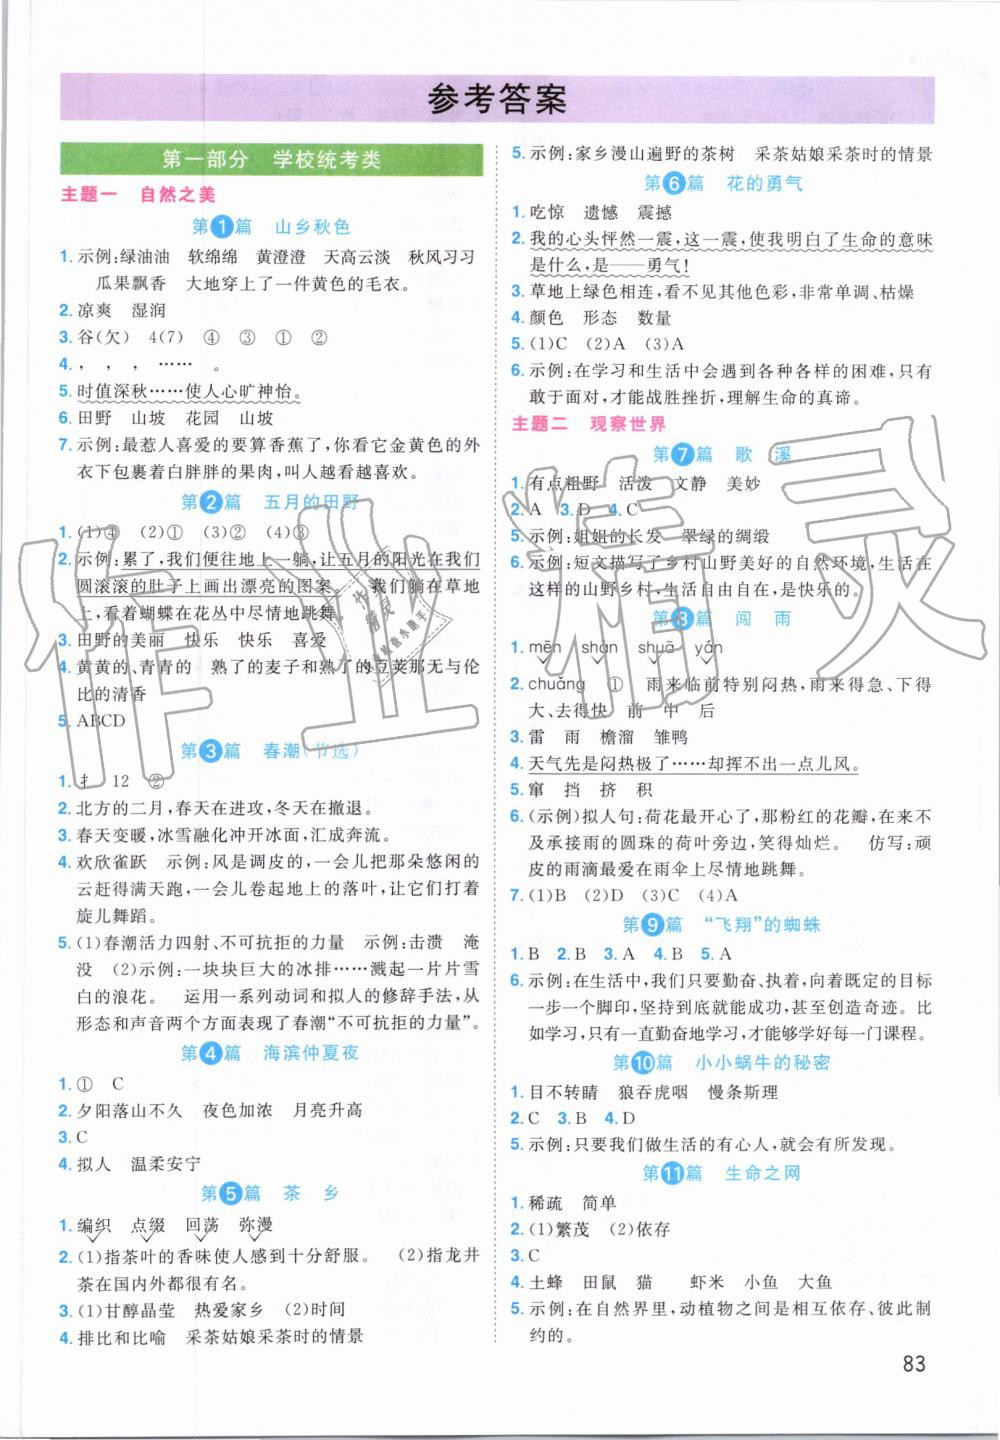 参考答案
第一部分 学校统考类
主题一 自然之美
第1篇 山乡秋色
1. 示例:绿油油 软绵绵 黄澄澄 天高云淡 秋风习习
瓜果飘香 大地穿上了一件黄色的毛衣。
2. 凉爽 湿润
3. 谷(欠) 4(7) ④ ③ ① ②
4. , , , …… 。
5. 时值深秋……使人心旷神怡。
6. 田野 山坡 花园 山坡
7. 示例:最惹人喜爱的要算香蕉了,你看它金黄色的外
衣下包裹着白胖胖的果肉,叫人越看越喜欢。
第2篇 五月的田野
1. (1)④ (2)① (3)② (4)③
2. 示例:累了,我们便往地上一躺,让五月的阳光在我们
圆滚滚的肚子上画出漂亮的图案。 我们躺在草地
上,看着蝴蝶在花丛中尽情地跳舞。
3. 田野的美丽 快乐 快乐 喜爱
4. 黄黄的、青青的 熟了的麦子和熟了的豆荚那无与伦
比的清香
5. ABCD
第3篇 春潮(节选)
1. 扌 12 ②
2. 北方的二月,春天在进攻,冬天在撤退。
3. 春天变暖,冰雪融化冲开冰面,汇成奔流。
4. 欢欣雀跃 示例:风是调皮的,一会儿把那朵悠闲的
云赶得满天跑,一会儿卷起地上的落叶,让它们打着
旋儿舞蹈。
5. (1)春潮活力四射、不可抗拒的力量 示例:击溃 淹
没 (2)示例:一块块巨大的冰排……溅起一片片雪
白的浪花。 运用一系列动词和拟人的修辞手法,从
形态和声音两个方面表现了春潮“不可抗拒的力量”。
第4篇 海滨仲夏夜
1. ① C
2. 夕阳落山不久 夜色加浓 月亮升高
3. C
4. 拟人 温柔安宁
第5篇 茶 乡
1. 编织 点缀 回荡 弥漫
2. (1)指茶叶的香味使人感到十分舒服。 (2)指龙井
茶在国内外都很有名。
3. (1)甘醇晶莹 热爱家乡 (2)时间
4. 排比和比喻 采茶姑娘采茶时的情景
5. 示例:家乡漫山遍野的茶树 采茶姑娘采茶时的情景
第6篇 花的勇气
1. 吃惊 遗憾 震撼
2. 我的心头怦然一震,这一震,使我明白了生命的意味
是什么,是——勇气!
3. 草地上绿色相连,看不见其他色彩,非常单调、枯燥
4. 颜色 形态 数量
5. (1)C (2)A (3)A
6. 示例:在学习和生活中会遇到各种各样的困难,只有
敢于面对,才能战胜挫折,理解生命的真谛。
主题二 观察世界
第7篇 歌 溪
1. 有点粗野 活泼 文静 美妙
2. A 3. D 4. C
5. 示例:姐姐的长发 翠绿的绸缎
6. 示例:短文描写了乡村山野美好的自然环境,生活在
这样的山野乡村,生活自由自在,是快乐的。
第8篇 闯 雨
1. mēn shǎn shuā yán
2. chuǎng ① 雨来临前特别闷热,雨来得急、下得
大、去得快 前 中 后
3. 雷 雨 檐溜 雏鸭
4. 天气先是闷热极了……却挥不出一点儿风。
5. 窜 挡 挤 积
6. (示例)拟人句:荷花最开心了,那粉红的花瓣,在来不
及承接雨的圆珠的荷叶旁边,笑得灿烂。 仿写:顽
皮的雨滴最爱在雨伞上尽情地跳舞。
7. (1)B (2)D (3)C (4)A
第9篇 “飞翔”的蜘蛛
1. B 2. B 3. A 4. B 5. A
6. 示例:在生活中,我们只要勤奋、执着,向着既定的目标
一步一个脚印,坚持到底就能成功,甚至创造奇迹。比
如学习,只有一直勤奋地学习,才能够学好每一门课程。
第10篇 小小蜗牛的秘密
1. 目不转睛 狼吞虎咽 慢条斯理
2. C 3. B 4. D
5. 示例:只要我们做生活的有心人,就会有所发现。
第11篇 生命之网
1. 稀疏 简单
2. (1)繁茂 (2)依存
3. C
4. 土蜂 田鼠 猫 虾米 小鱼 大鱼
5. 示例:在自然界里,动植物之间是相互依存、彼此制
约的。
83
作业精灵